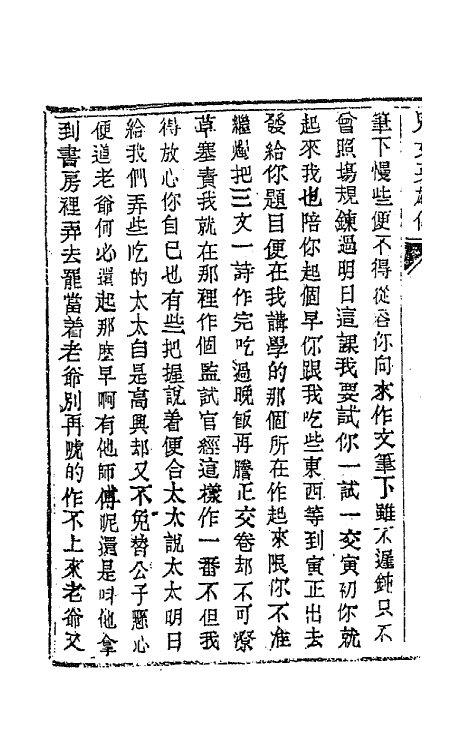 筆下慢些便不得從容你向來作文筆下雖不遲鈍只不
曾照場規鍊過明日這課我要試你一試一交寅初你就
起來我也陪你起個早你跟我吃些東西等到寅正出去
發給你題目便在我講學的那個所在作起來限你不准
繼燭把三文一詩作完吃過晚飯再謄正交卷却不可潦
草塞責我就在那裡作個監試官經這樣作一番不但我
得放心你自己也有些把握說着便合太太說太太明日
給我們弄些吃的太太自是高興却又不免替公子懸心
便道老爺何必還起那麽早啊有他師傅呢還是呌他拿
到書房裡弄去罷當着老爺別再唬的作不上來老爺又